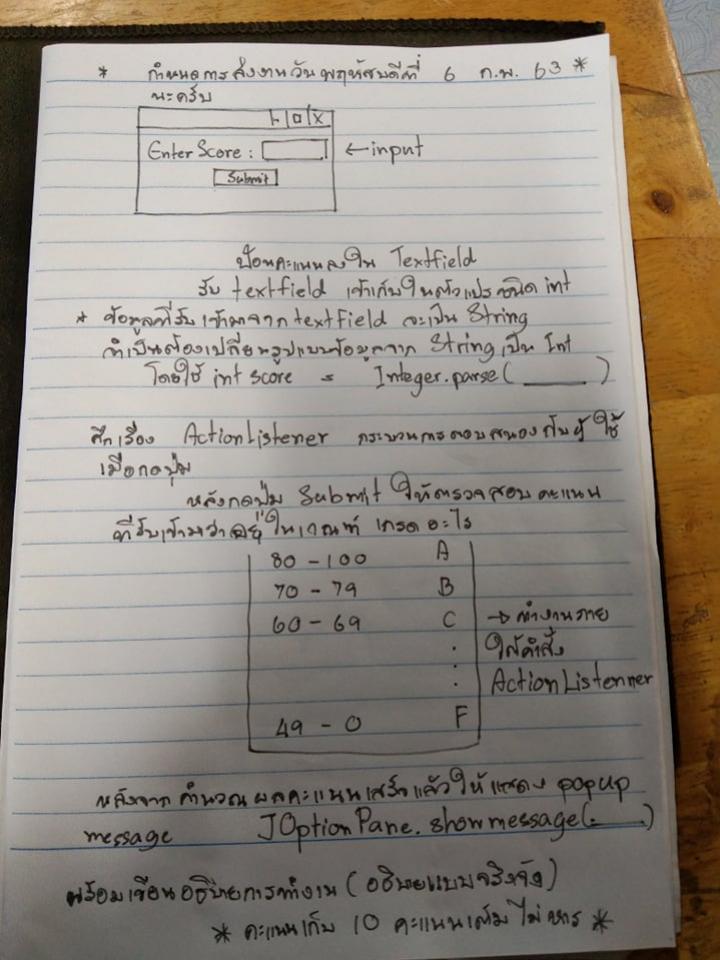 * กำหนดการส่งงานวันพฤหัสบดีที่ 6 ก.พ. 63 *
นะครับ
Enter Score :
← input
Submit
ป้อนคะแนนลงใน Textfield
รับ textfield เข้าเก็บในตัวแปรชนิด int
* ข้อมูลที่รับเข้ามาจาก textfield จะเป็น String
จำเป็นต้องเปลี่ยนรูปแบบข้อมูลจาก String เป็น Int
โดยใช้ int score = Integer.parse( ______ )
ศึกเรื่อง ActionListener กระบวนการตอบสนองกับผู้ใช้
เมื่อกดปุ่ม
หลังกดปุ่ม Submit ให้ตรวจสอบคะแนน
ที่รับเข้ามาว่าอยู่ในเกณฑ์ เกรดอะไร
80 - 100 A
70 - 79 B
60 - 69 C
.
:
49 - 0 F
→ ทำงานภาย
ใต้คำสั่ง
ActionListenner
หลังจากคำนวณผลคะแนนเสร็จแล้วให้แสดง popup
message JOptionPane.showmessage(______)
พร้อมเขียนอธิบายการทำงาน (อธิบายแบบจริงจัง)
* คะแนนเก็บ 10 คะแนนเต็ม ไม่หาร *